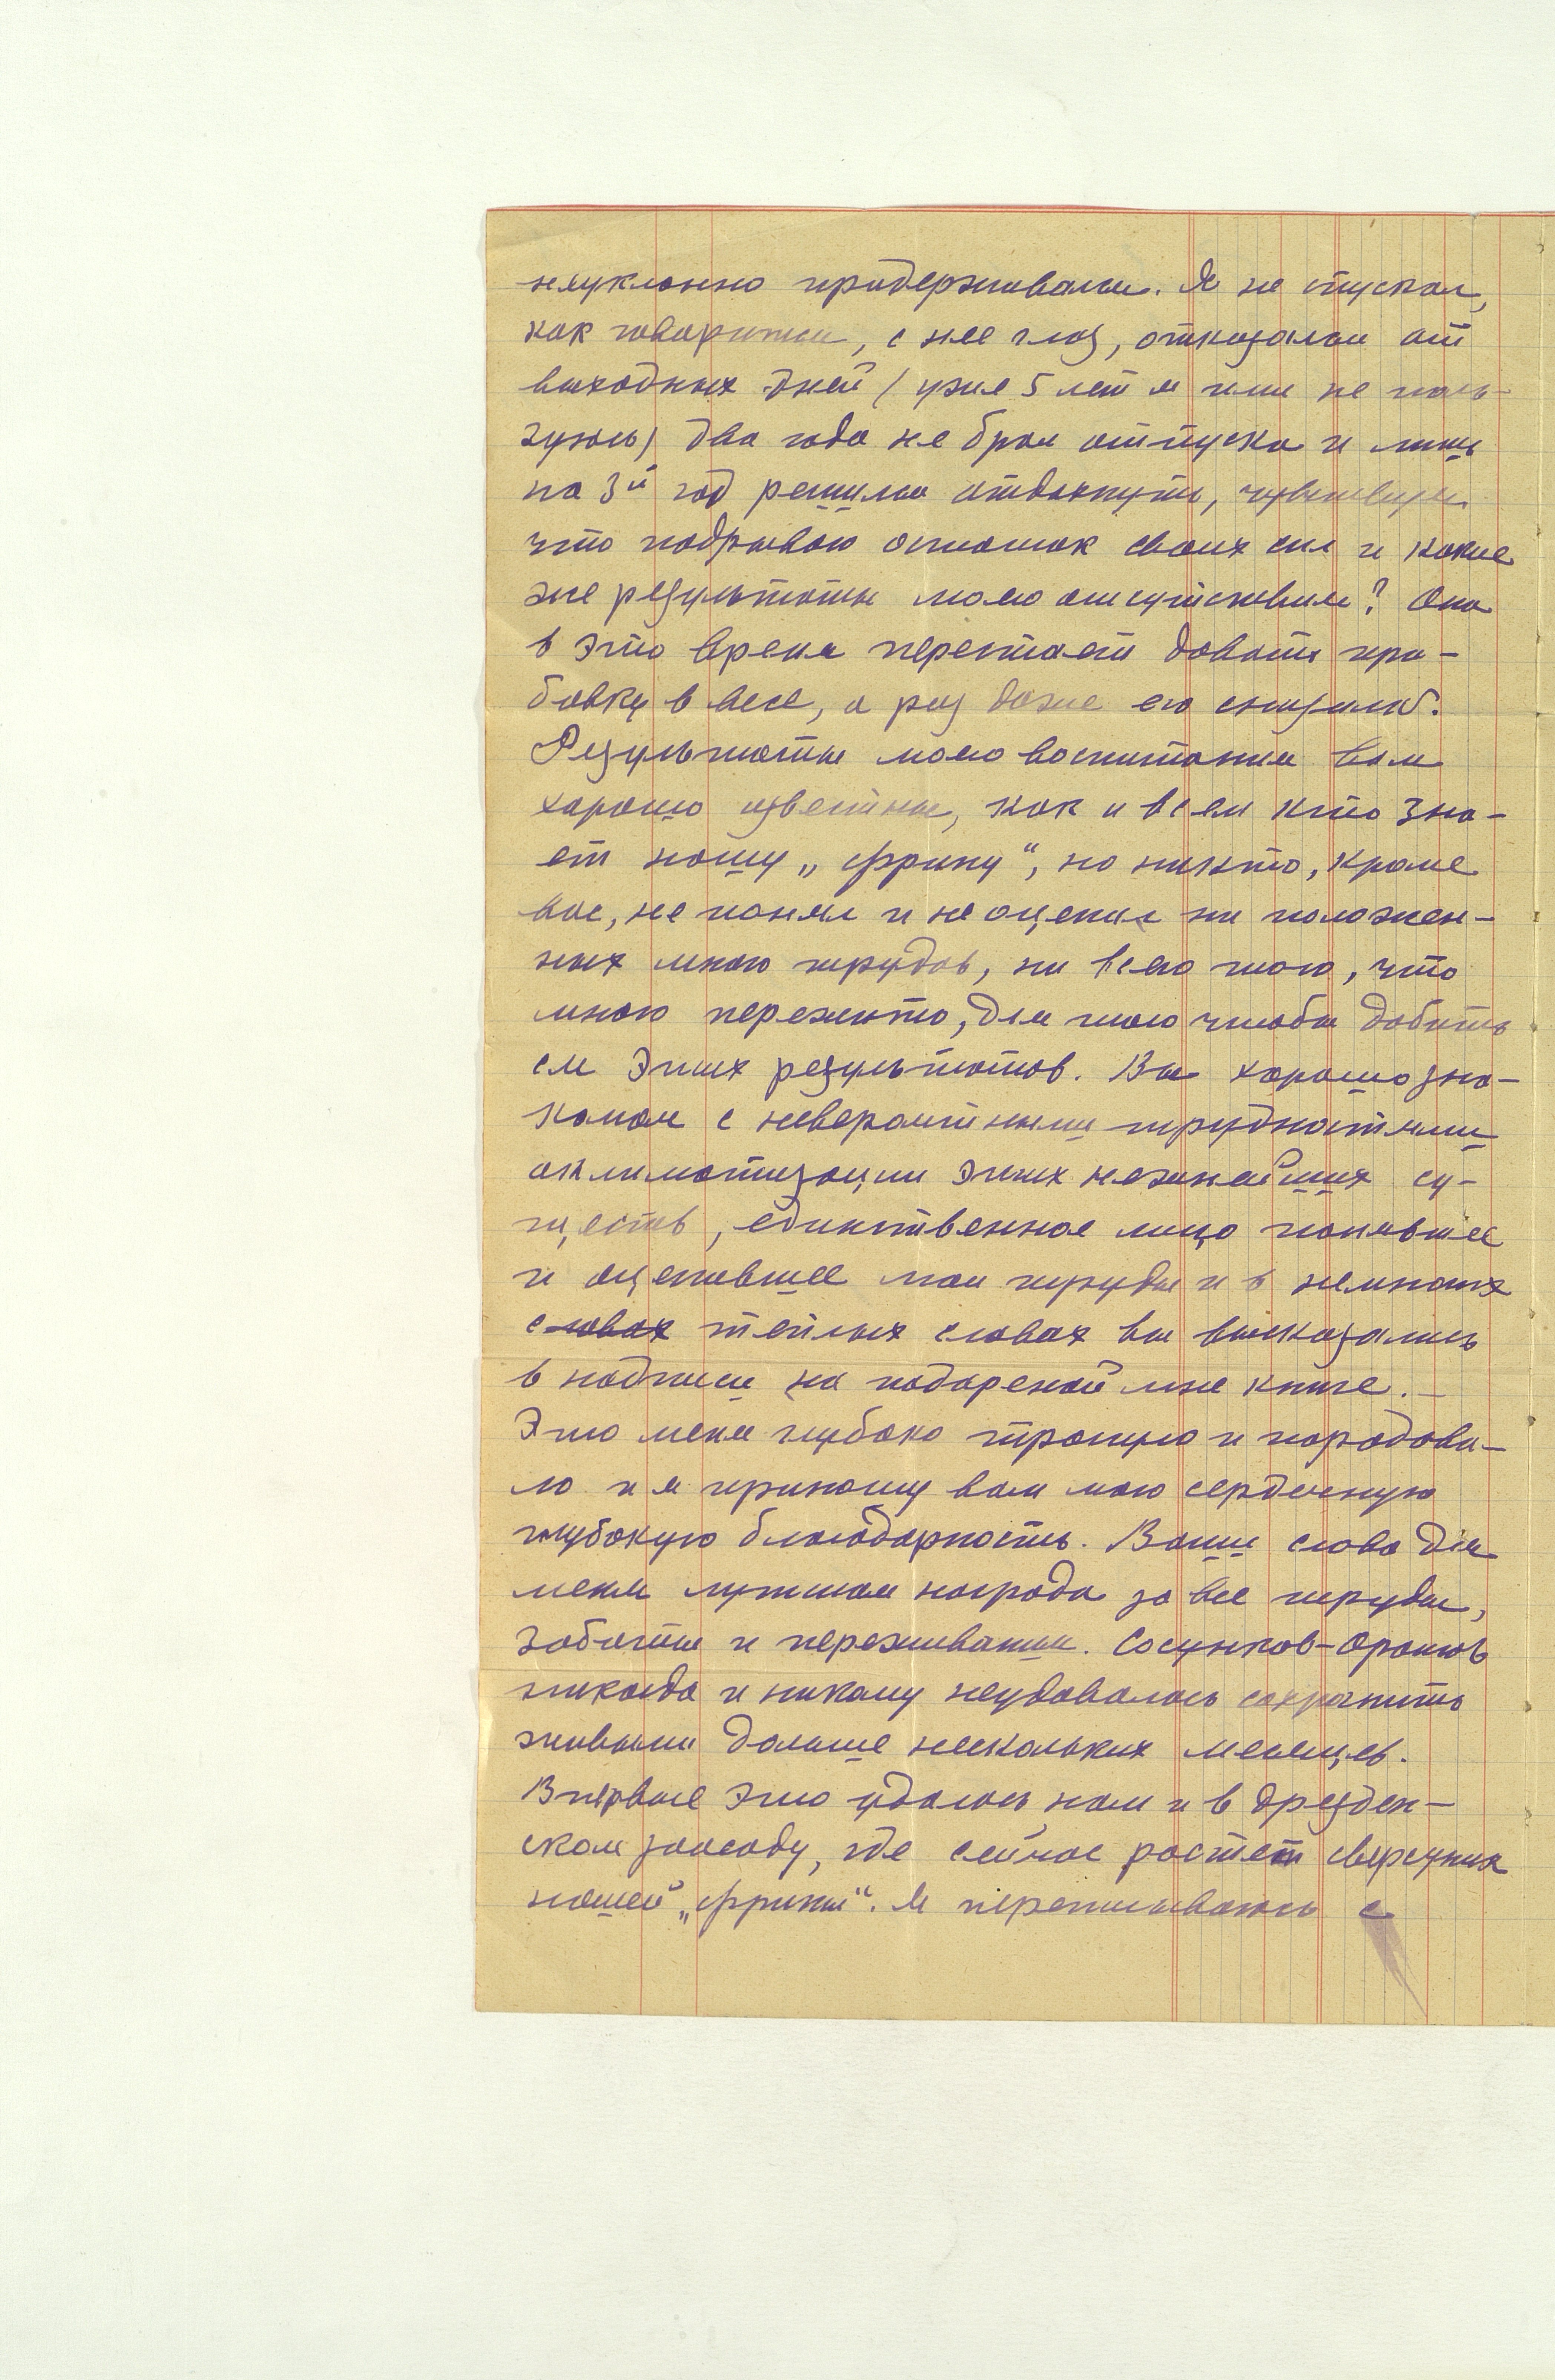 неуклонно придерживался. Я не спускал,
как говориться, с нее глаз, отказался от
выходных дней (уже 5 лет я ими не поль-
зуюсь) два года не брал отпуска и лишь
на 3й год решился отдохнуть, чувствуя
что подрываю остаток своих сил и какие
же результаты моего отсутсвтвия? Она
в это время перестает давать при-
бавку в весе, а раз даже его снизила.
Результаты моего воспитания вам
хорошо известны, как и всем кто зна-
ет нашу „Фрину“, но никто, кроме
вас, не понял и не оценил ни положен-
ных мною трудов, ни всего того, что
мною пережито, для того чтобы добить
ся этих результатов. Вы хорошо зна-
комы с невероятными трудностями
акклиматизации этих нежнейших су-
ществ, единственное лицо понявшее
и оценившее мои труды и в немногих
словах теплых словах вы высказались
в надписи на подареной мне книге. —
Это меня глубоко тронуло и порадова-
ло и я приношу вам мою сердечную
глубокую благодарность. Ваши слова для
меня лучшая награда за все труды,
заботы и переживания. Сосунков-орангов
никогда и никому неудавалось сохранить
живыми дольше нескольких месяцев.
Впервые это удалось нам и в Дрезден-
ском зоосаду, где сейчас растет сверстник
нашей „Фрины“. Я переписываюсь с